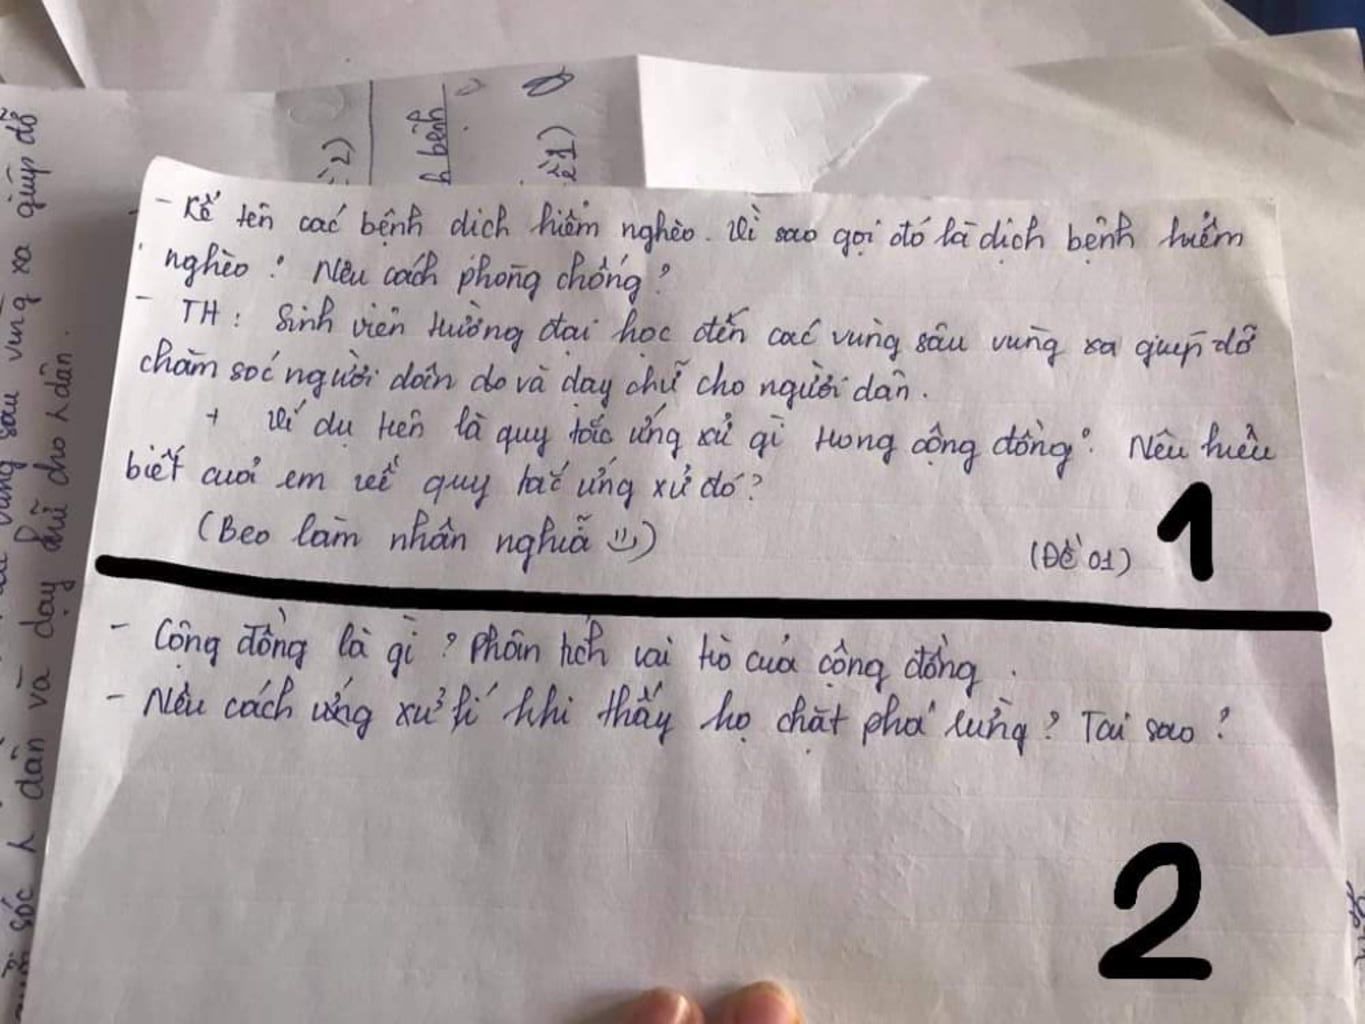 - Kể tên các bệnh dịch hiểm nghèo. Vì sao gọi đó là dịch bệnh hiểm
nghèo? Nêu cách phòng chống?
- TH: Sinh viên trường đại học đến các vùng sâu vùng xa giúp đỡ
chăm sóc người đơn do và dạy chữ cho người dân.
+ Ví dụ trên là quy tắc ứng xử gì trong cộng đồng? Nêu hiểu
biết của em về quy tắc ứng xử đó?
(Beo làm nhân nghĩa)
(Đề 01)
1
- Cộng đồng là gì? Phân tích vai trò của cộng đồng.
- Nêu cách ứng xử khi thấy họ chặt phá rừng? Tại sao?
2
vùng sâu vùng xa giúp đỡ
dân và dạy chữ cho n dân.
bệnh